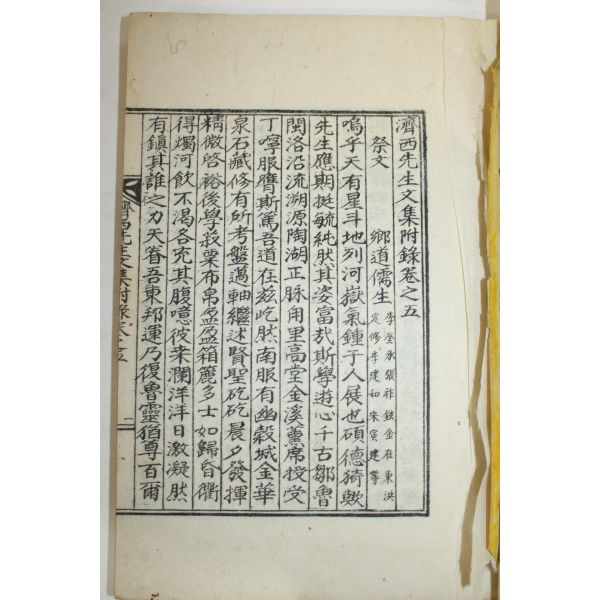 濟西先生文集附錄卷之五
祭文 鄕道儒生 李 承張 鉉金在東洪
定修李建和宋寅建等
嗚乎天有星斗地列河嶽氣鍾于人展也碩德猗歟
先生應期挺毓純然其姿富哉斯學遊心千古鄒魯
閩洛沿流溯源陶湖正脉用里高堂金溪薰席授受
丁寧服膺斯篤吾道在玆屹然南服有幽穀城金華
泉石藏修有所考盤薖軸繼述賢聖矻矻晨夕發揮
精微啓裕後學菽粟布帛盈盈箱簏多士如歸昏衢
得燭河飮不渴各充其腹噫彼柒瀾洋洋日激凝然
有鎭其誰之力天眷吾東邦運乃復魯靈猶尊百爾
濟西先生文集附錄卷之五 一